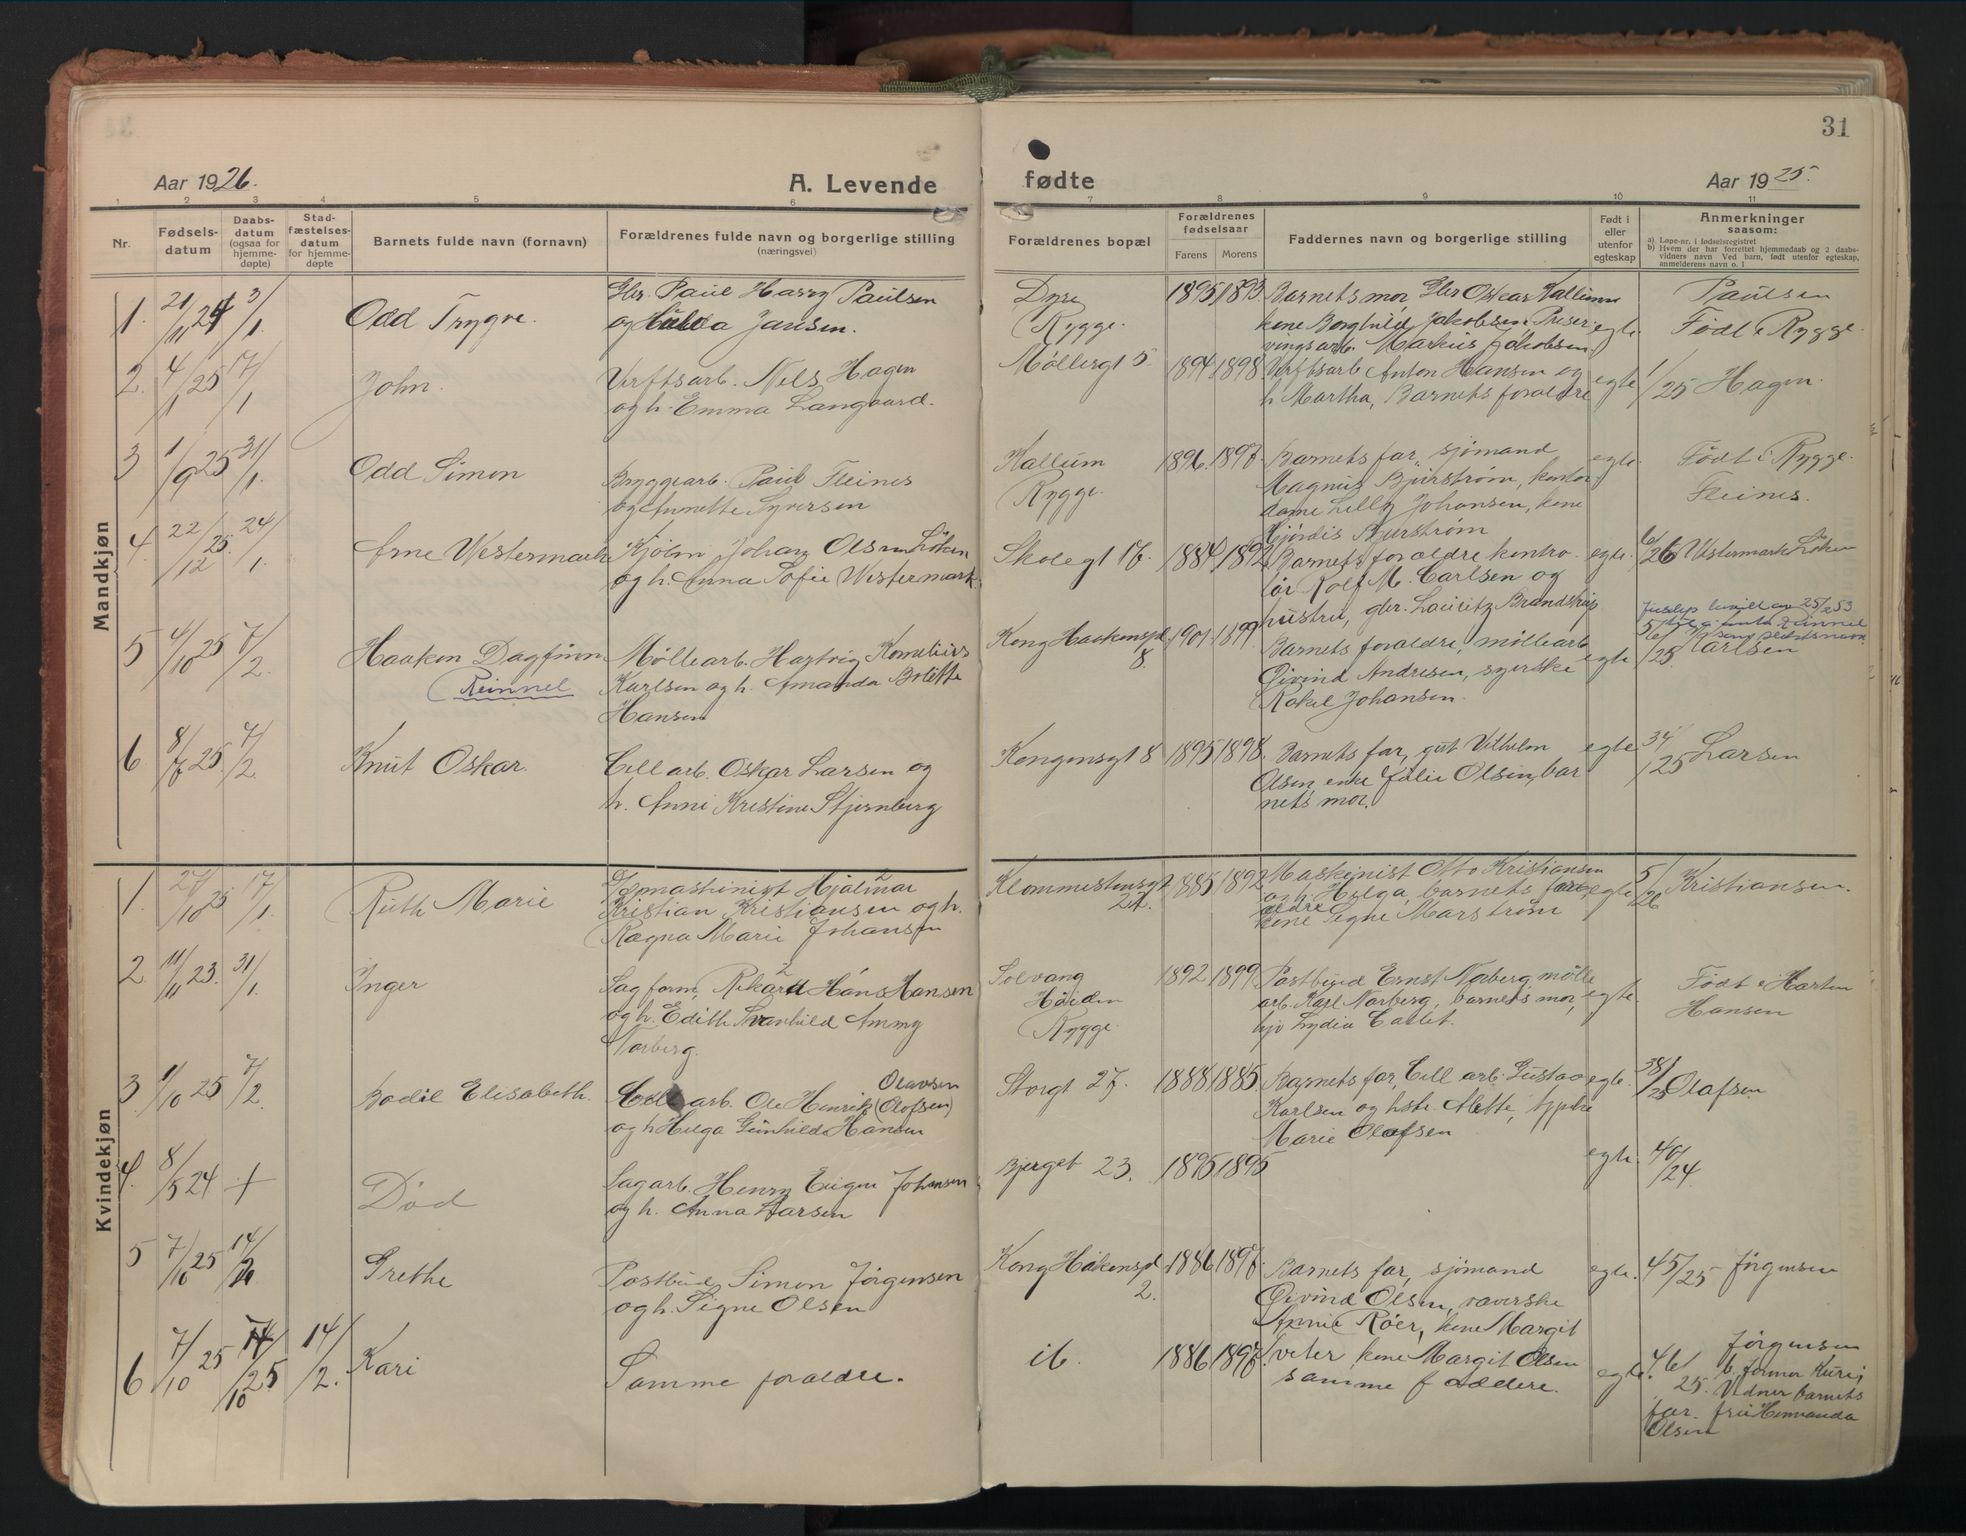 31
Aar 1926.
A. Levende
fødte
Aar 1925.
1 2 3 4 5 6 7 8 9 10 11
Nr.
Fødsels-
datum
Daabs-
datum
(ogsaa for
hjemme-
døpte)
Stad-
fæstelses-
datum
for hjemme-
døpte
Barnets fulde navn (fornavn)
Forældrenes fulde navn og borgerlige stilling
(næringsvei)
Forældrenes bopæl
Forældrenes
fødselsaar
Farens Morens
Faddernes navn og borgerlige stilling
Født i
eller
utenfor
egteskap
Anmerkninger
saasom:
a) Løpe-nr. i fødselsregistret
b) Hvem der har forrettet hjemmedaab og 2 daabs-
vidners navn Ved barn, født utenfor egteskap,
anmelderens navn o. l
Mandkjøn
1. 21/11 24 3/1 Odd Trygve.
Gbr. Paul Harry Paulsen
og Hulda Jansen.
Dyre
Rygge.
1895 1893
Barnets mor, Gbr Oskar Kallum
kene Borghild Jakobsen Preser-
vingsarb. Markus Jakobsen
egte.
Paulsen
Født i Rygge.
2. 4/1 25 17/1 John.
Verftsarb. Nels Hagen
og h. Emma Langaard.
Møllergt 5.
1894 1898
Verftsarb Anton Hansen og
h. Martha, Barnets foraldre
egte
1/25 Hagen.
3 1/9 25 31/1 Odd Simon
Bryggearb. Paul Fleines
og Annette Syversen
Kallum
Rygge.
1896. 1898.
Barnets far, sjømand
Magnus Bjurstrøm, kontor
dame Lilly Johansen, kene
Hjørdis Bjurstrøm
egte.
Født i Rygge.
Fleines.
4. 22/12 25. 24/1 Arne Westermark
Johan Olsen Løken
og h. Anna Sofie Westermark.
Skolegt 16.
1884 1892
Barnets foraldre kontro-
lør Rolf M. Carlsen og
hustru, gbr. Lauritz Brandstrup
egte.
6/26 Westermark Løken
5 4/10 25 7/2 Haaken Dagfinn
Reinnel
Møllearb. Hartvig Kornelius
Karlsen og h. Amanda Bolette
Hansen
Kong Haakonspl.
8.
1901. 1899
Barnets foraldre, møllearb
Øivind Andresen, syerske
Rakel Johansen.
egte
25/2 53
Karlsen
6 8/6 25. 7/2 Knut Oskar.
Cell arb. Oskar Larsen og
h. Anni Kristine Stjernberg
Kongensgt 8
1895 1898.
Barnets far, gut Vilhelm
Olsen, enke Julie Olsen, bar
nets mor.
egte.
34/25 Larsen
Kvindekjøn
1. 27/10 25 17/1 Ruth Marie
Hjalmar
Kristian Kristiansen og h.
Ragna Marie Johansen
1885 1892
Maskinist Otto Kristiansen
og h. Helga, barnets for
ældre
kene Signe Marstrøm
egte
5/26 Kristiansen.
2 11/11 23. 31/1. Inger
Sag form, Rikard Hans Hansen
og h. Edith Svanhild Ammy
Norberg.
Solvang
Høiden
Rygge.
1892 1899
Postbud Ernst Norberg, mølle
arb. Karl Norberg, barnets mor,
Lydia
egte.
Født i Horten
Hansen
3. 1/10 25 7/2. Bodil Elisabeth.
Cell arb. Ole Henrik (Olafsen)
Olavsen
og h Helga Gunhilda Hansen
Storgt 27.
1888 1885.
Barnets far, Cell arb. Gustav
Karlsen og hstr. Alette,
Marie Olafsen
egte.
38/25 Olafsen
4. 8/5 24 + Død
Sagarb. Henry Eugen Johansen
og h. Anna Larsen
Bjerget 23.
1895 1895
egte.
40/24
5 7/10 25 14/2 Grethe
Postbud Simon Jørgensen
og h. Signe Olsen
Kong Håkonspl.
2.
1886 1898.
Barnets far, sjømand
Øivind Olsen, væverske
Annie Røer, kene Margit
egte.
45/25 Jørgensen
6 7/10 25 14/10 25 14/2. Kari
Samme foraldre.
ib.
1886 1898.
Tveter, kene Margit Olsen
samme faddere.
egte.
46/25. Jørgensen
b. jormor Kure;
Vidner barnets
far. fru Hermanda
Olsen